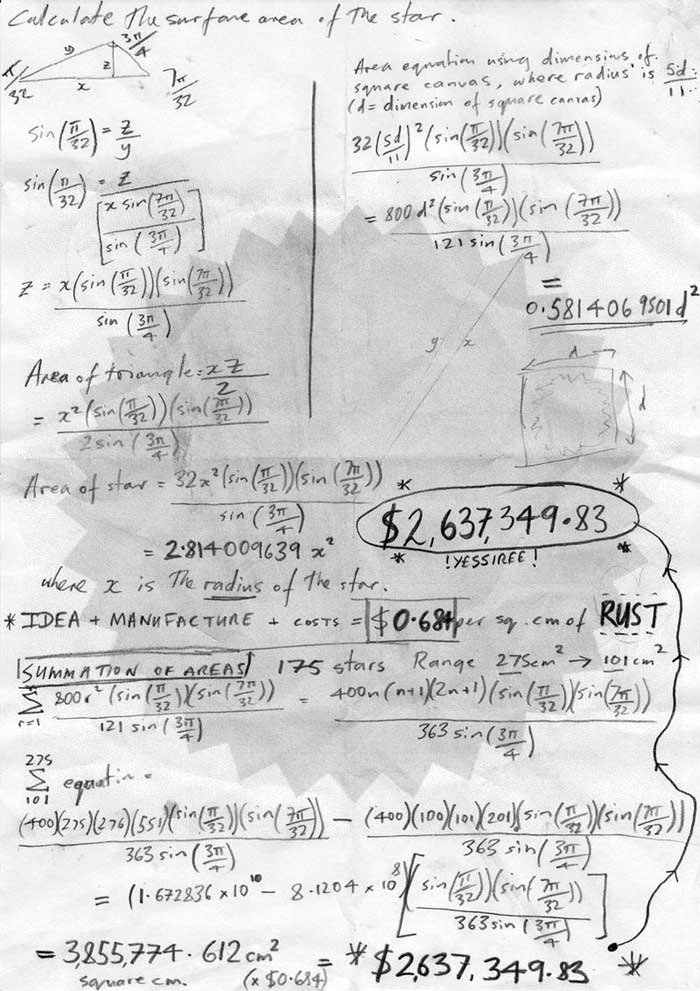 Calculate the surface area of the star.
y
3π/4
z
π/32
x
7π/32
sin(π/32) = z/y
sin(π/32) = z / [x sin(7π/32) / sin(3π/4)]
z = x(sin(π/32))(sin(7π/32)) / sin(3π/4)
Area of triangle = xz/2
= x²(sin(π/32))(sin(7π/32)) / 2 sin(3π/4)
Area equation using dimensions of
square canvas, where radius is 5d/11.
(d = dimension of square canvas)
32(5d/11)²(sin(π/32))(sin(7π/32)) / sin(3π/4)
= 800 d²(sin(π/32))(sin(7π/32)) / 121 sin(3π/4)
=
0.5814069501d²
y x
d
d
Area of star = 32x²(sin(π/32))(sin(7π/32)) / sin(3π/4)
= 2.814009639 x²
* *
$2,637,349.83
* *
!YESSIREE!
where x is the radius of the star.
* IDEA + MANUFACTURE + COSTS = $0.684 per sq. cm of RUST
SUMMATION OF AREAS 175 stars Range 275cm² → 101cm²
n Σ r=1 800r²(sin(π/32))(sin(7π/32)) / 121 sin(3π/4) = 400n(n+1)(2n+1)(sin(π/32))(sin(7π/32)) / 363 sin(3π/4)
275 Σ 101 equation =
(400)(275)(276)(551)(sin(π/32))(sin(7π/32)) / 363 sin(3π/4) − (400)(100)(101)(201)(sin(π/32))(sin(7π/32)) / 363 sin(3π/4)
= (1.672836 × 10¹⁰ − 8.1204 × 10⁸)[(sin(π/32))(sin(7π/32)) / 363 sin(3π/4)]
= 3,855,774.612 cm² = * $2,637,349.83 *
square cm. (x $0.684)